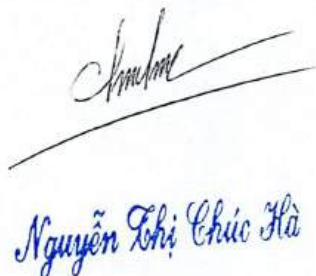 Nguyễn Thị Chúc Hà